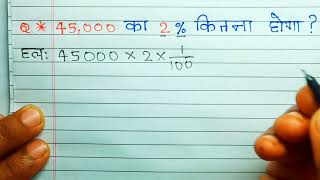 Q * 45,000 का 2 % कितना होगा ?
हल: 45000 × 2 × 1/100